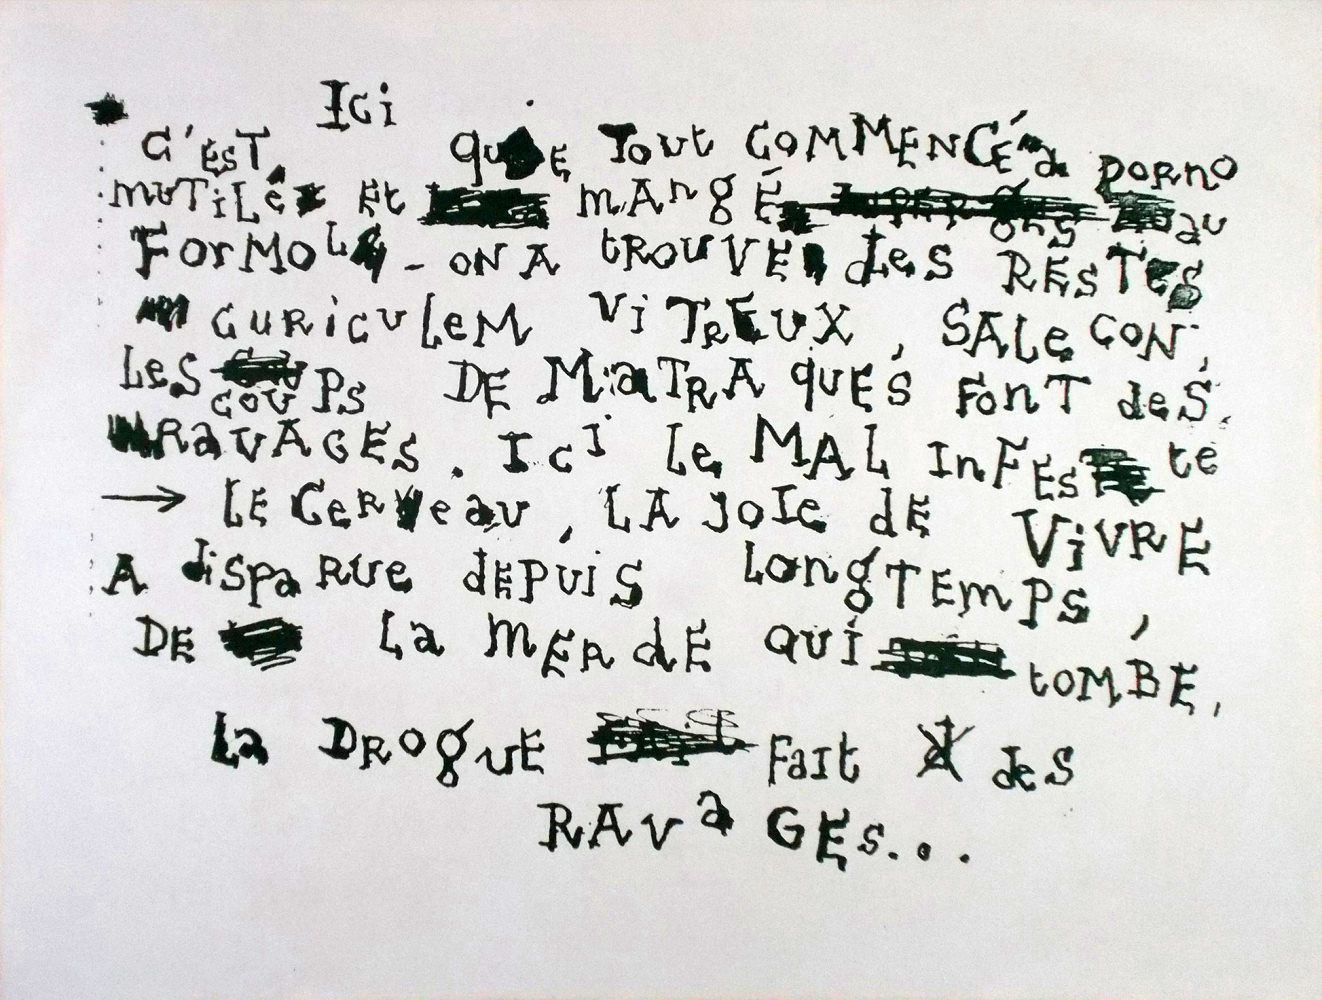 Ici
C'EST QUE TOUT COMMENCÉ a porno
MUTILÉ Et MANGÉ au
FORMOLE - ON A TROUVE des RESTES
CURICULEM VITREUX, SALE CON,
LES COUPS DE MATRAQUES FONT deS
RAVAGES. ICI Le MAL INFESte
→ LE CERVEAU, LA JOIE DE VIVRE
A diSpaRUE dEPUIS LONGTEMPS,
DE La MERdE QUI tOMBE,
La DROGUE Fait des
RAVaGES...